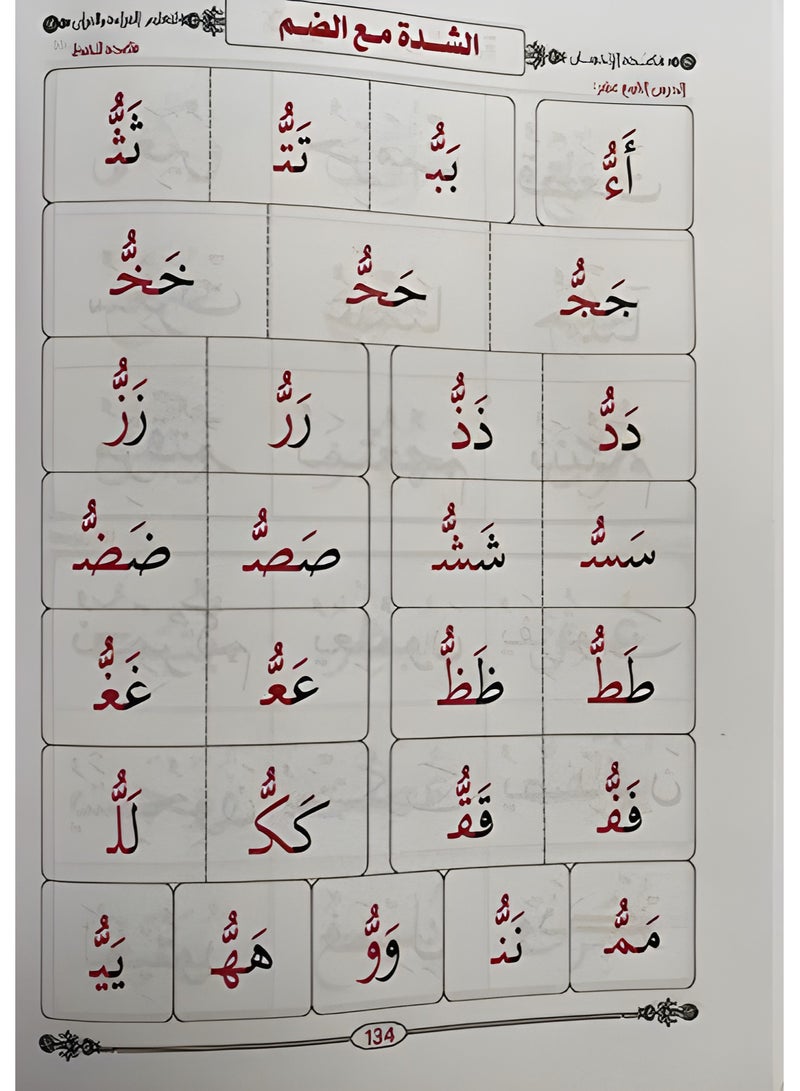 الشدة مع الضم
أَءُّ بَبُّ تَتُّ ثَثُّ
جَجُّ حَحُّ خَخُّ
دَدُّ ذَذُّ رَرُّ زَزُّ
سَسُّ شَشُّ صَصُّ ضَضُّ
طَطُّ ظَظُّ عَعُّ غَغُّ
فَفُّ قَقُّ كَكُّ لَلُّ
مَمُّ نَنُّ وَوُّ هَهُّ يَيُّ
134